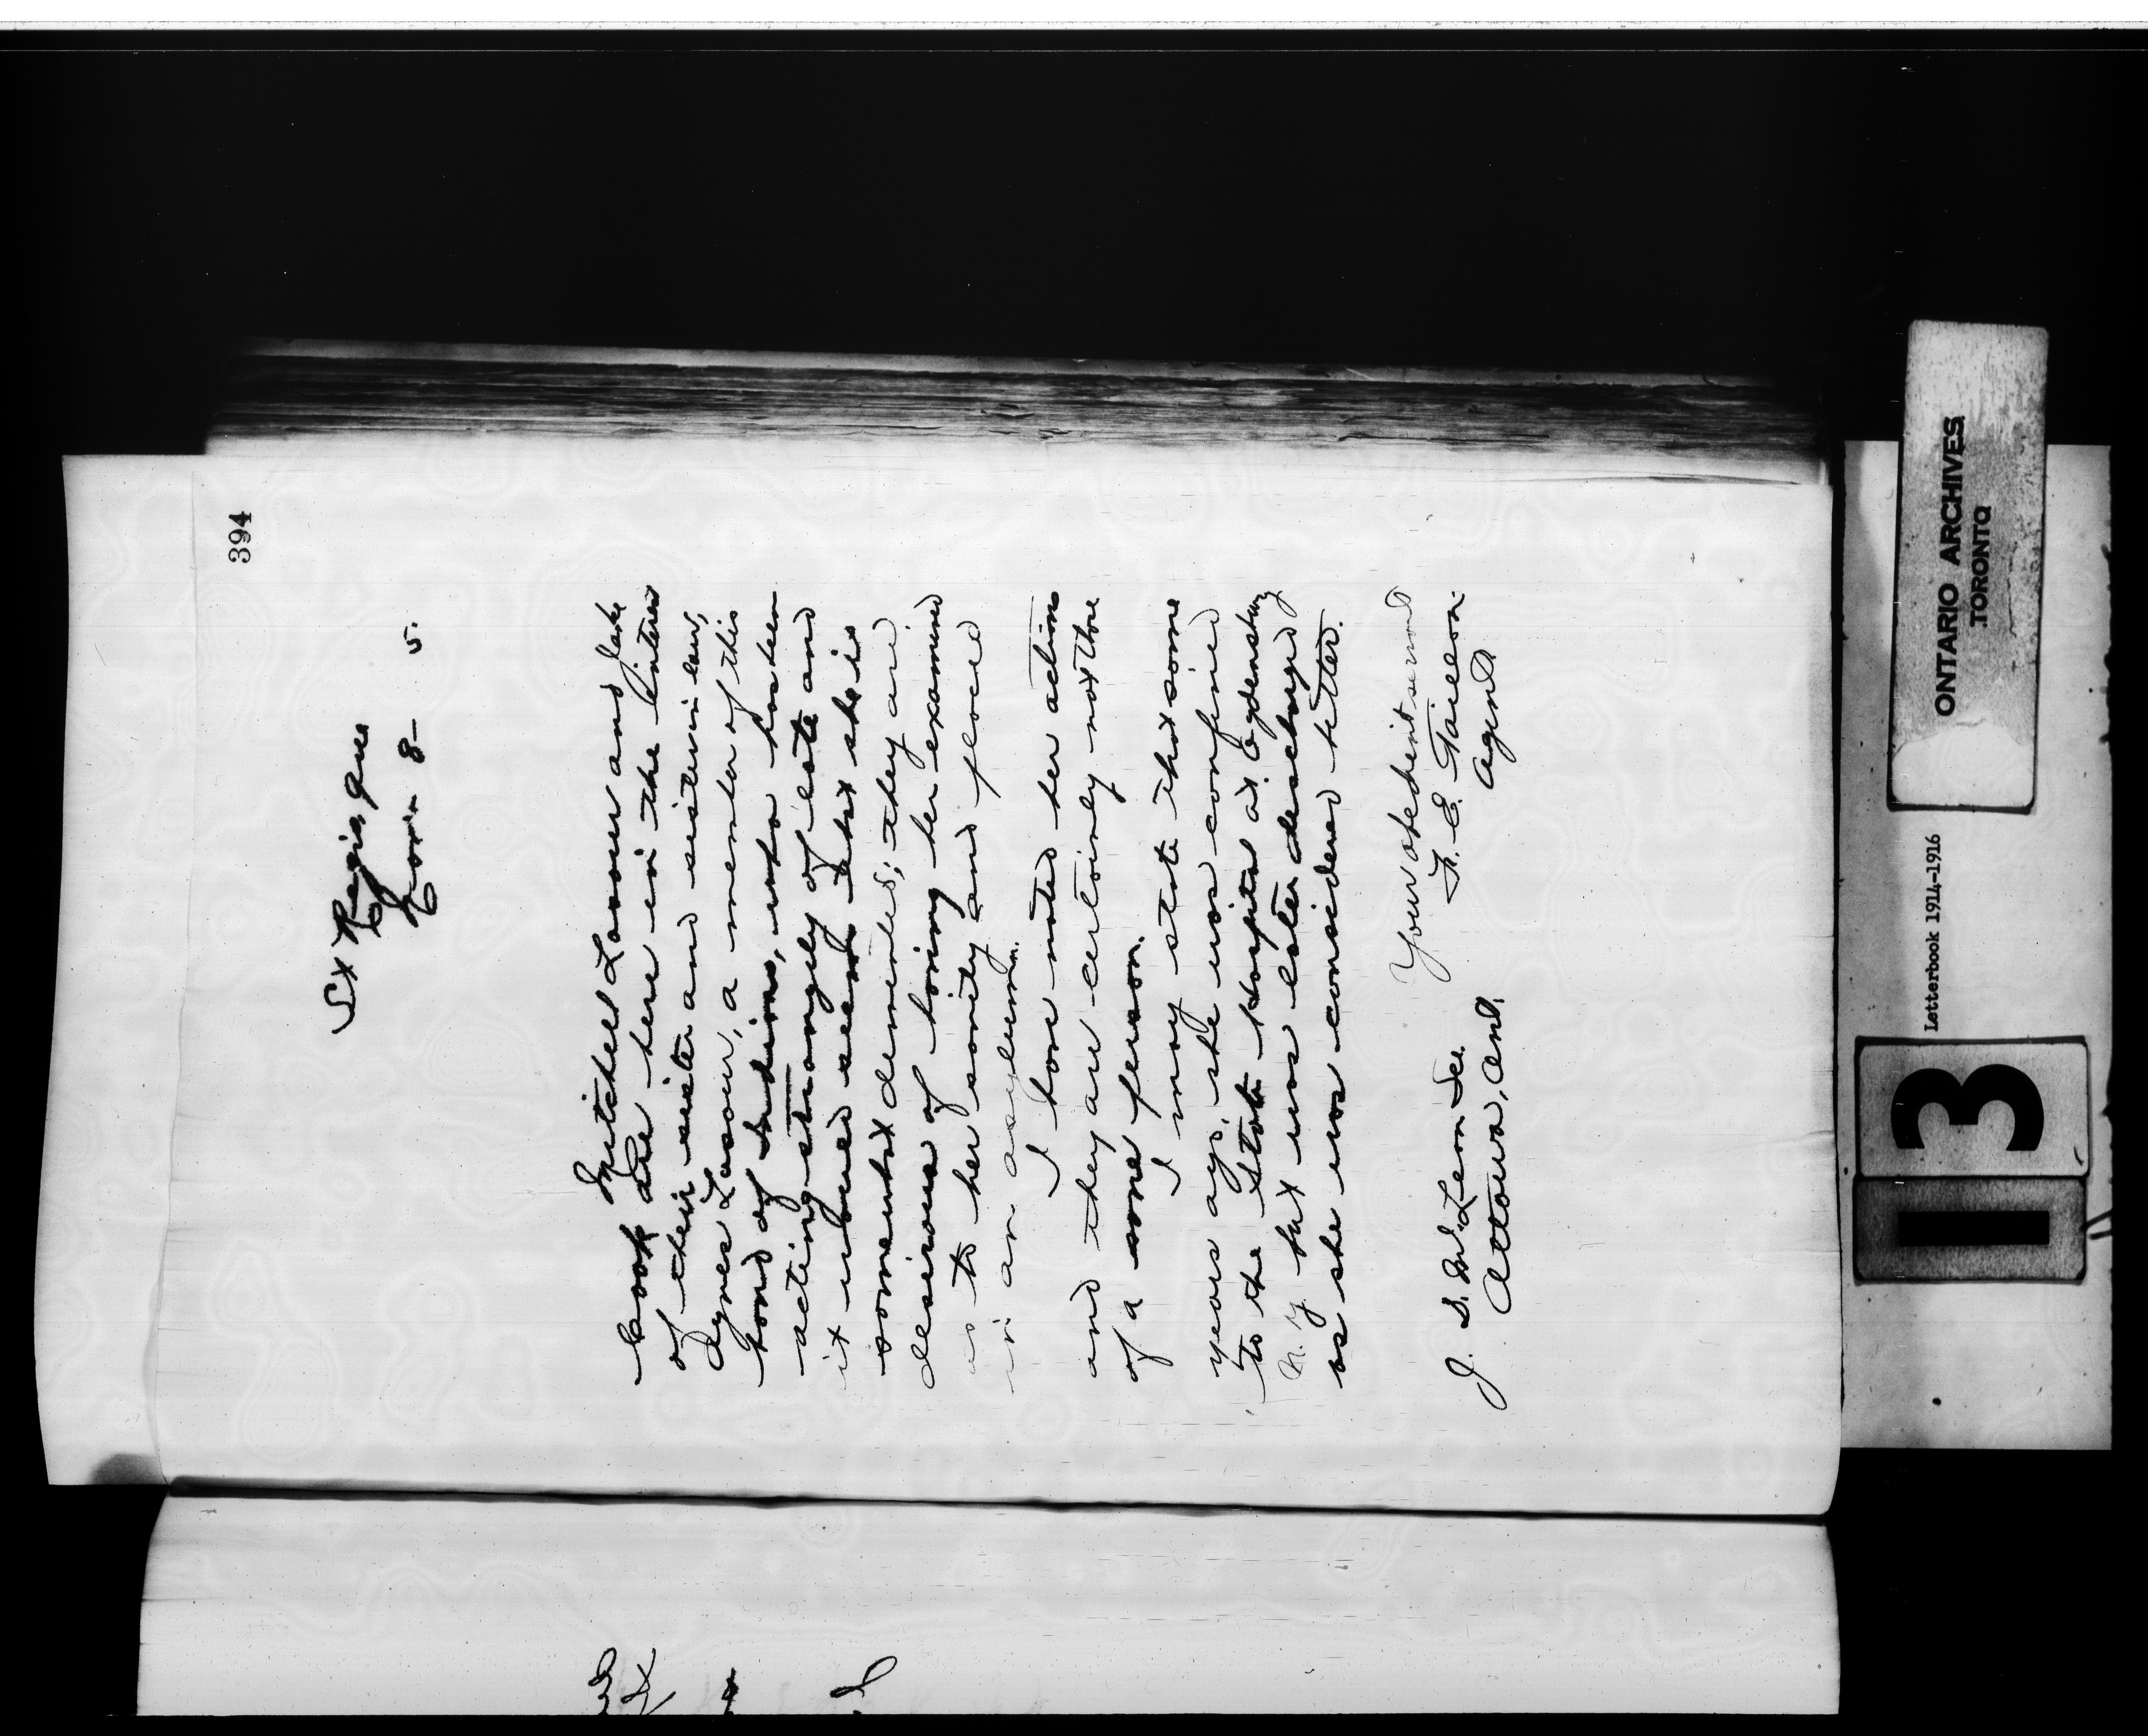 394
St Regis, Que
Nov. 8 - 5.
Mitchell Lazour and Jake
Cook are here in the interest
of their sister and sister in law,
Agnes Lazour, a member of this
band of Indians, who has been
acting strangely of late and
it would seem that she is
somewhat demented; they are
desirous of having her examined
as to her sanity and placed
in an asylum.
I have noted her actions
and they are certainly not those
of a sane person.
I may state that some
years ago, she was confined
to the State Hospital at Ogdensburg
N.Y. but was later discharged
as she was considered better.
Your obedient servant
F. E. Taillon
Agent.
J. D. McLean Sec.
Ottawa, Ont.
ONTARIO ARCHIVES
TORONTO
Letterbook 1914-1916
13